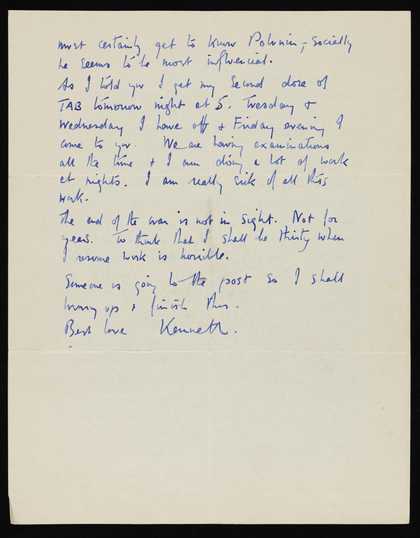 must certainly get to know Polunin; socially
he seems to be most influencial.
As I told you I get my second dose of
TAB tomorrow night at 5. Tuesday &
Wednesday I have off & Friday evening I
come to you. We are having examinations
all the time & I am doing a lot of work
at nights. I am really sick of all this
work.
The end of the war is not in sight. Not for
years. To think that I shall be thirty when
I resume work is horrible.
Someone is going to the post so I shall
hurry up & finish this.
Best love Kenneth.